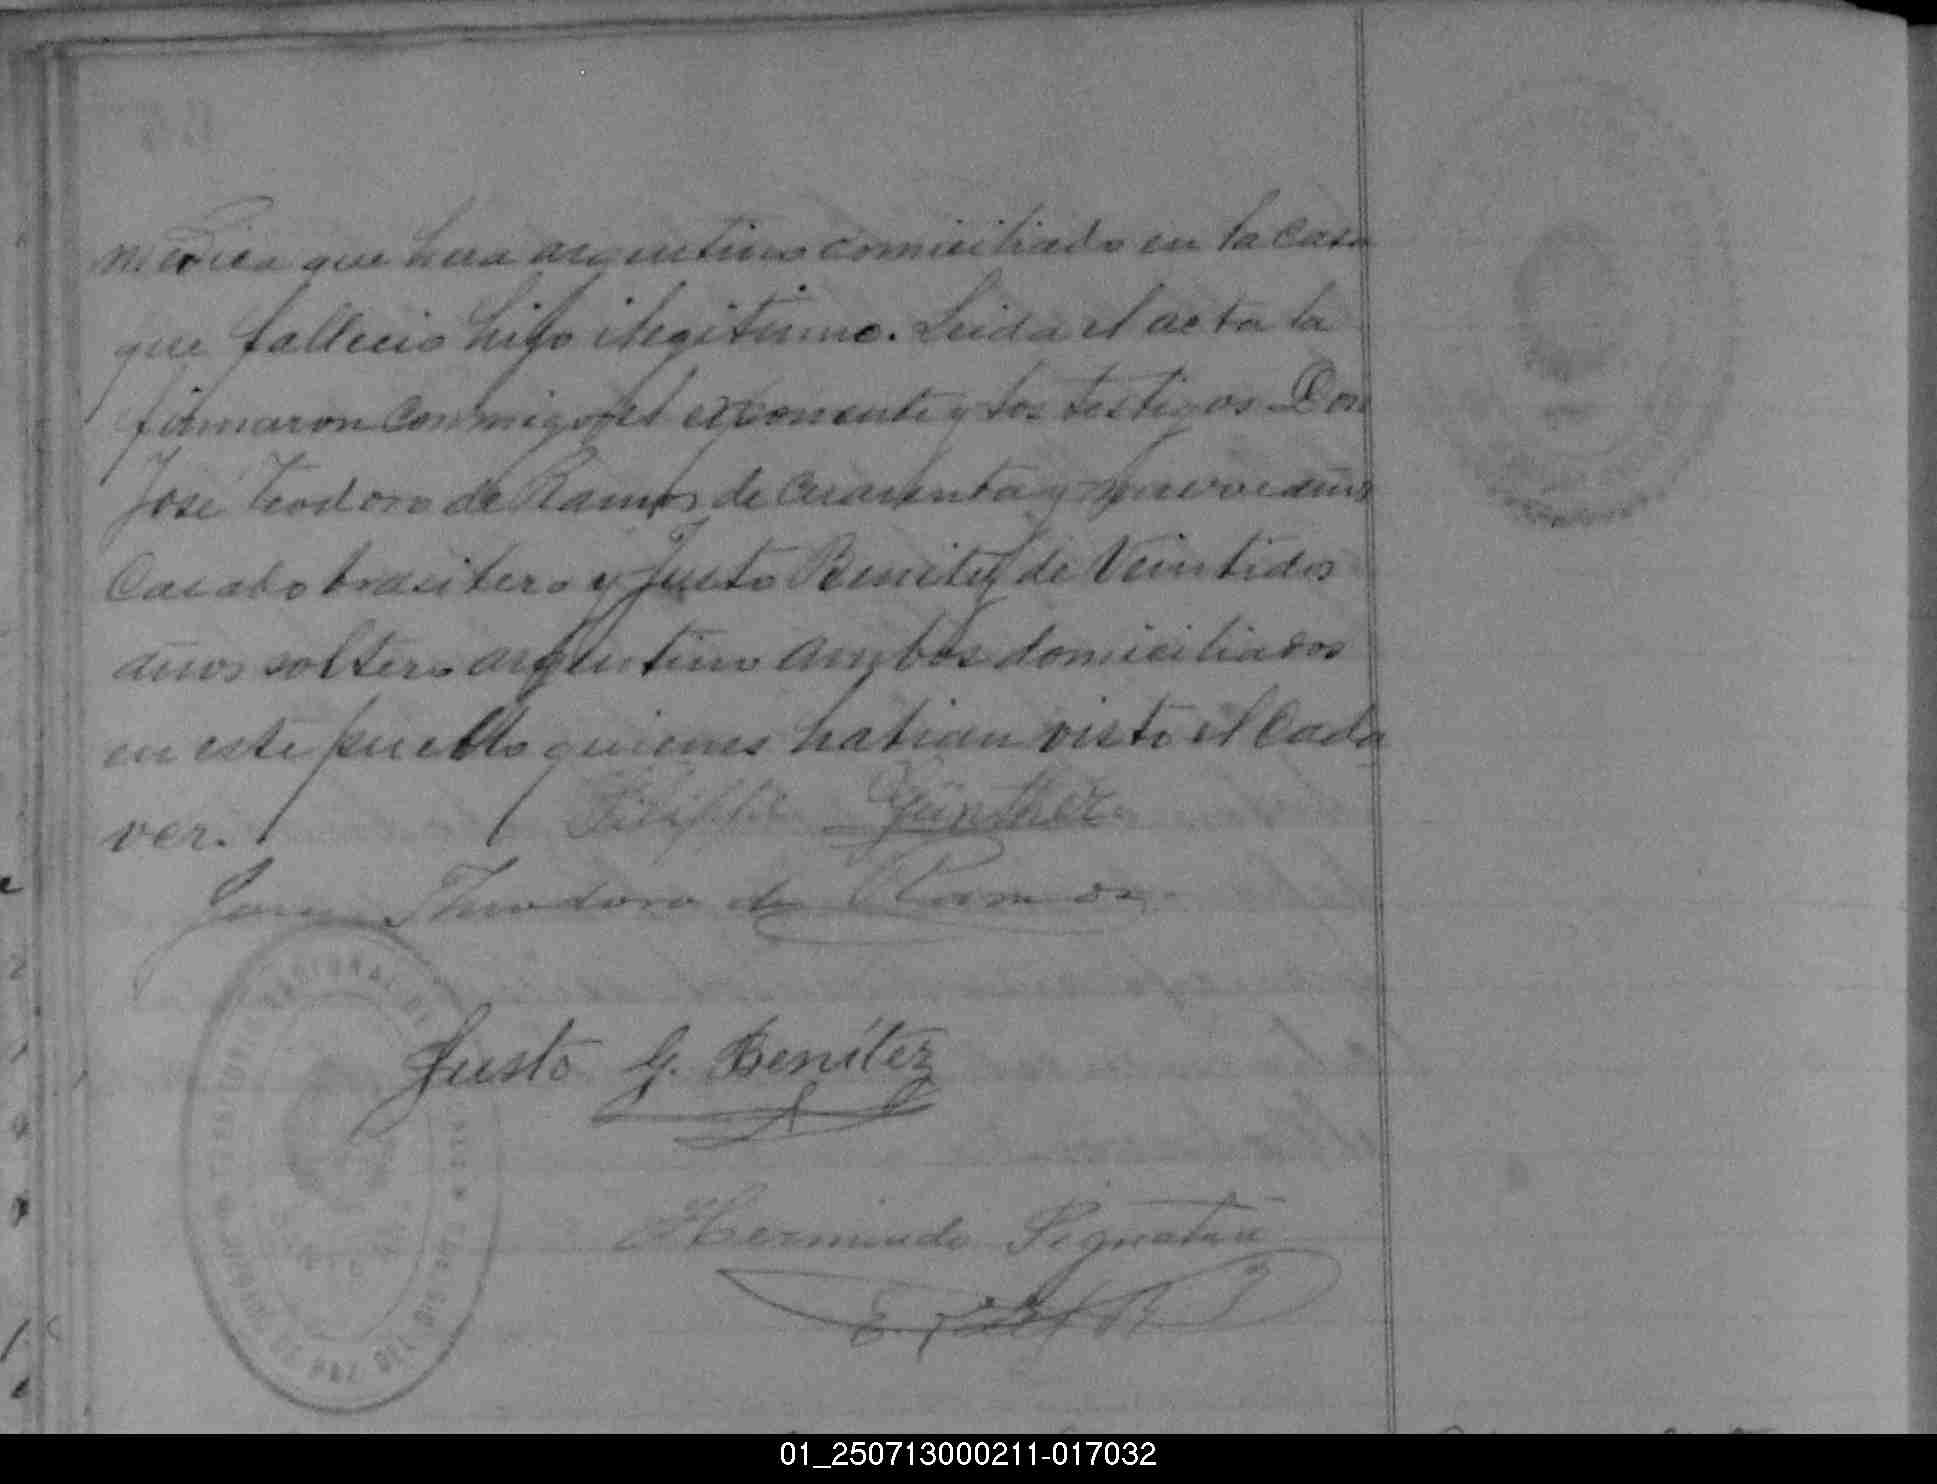 medica que hera argentino domiciliado en la casa
que fallecio hijo ilegitimo. Leida el acta la
firmaron conmigo el exponente y los testigos Don
José Teodoro de Ramos de cuarenta y nueve años
Casado brasilero y Justo Benitez de Veintidos
años soltero argentino ambos domiciliados
en este pueblo quienes habian visto el Cada
ver.
Günther
Theodoro de Ramos
Justo G. Benítez
Hermindo
TERRITORIO NACIONAL DE
01_250713000211-017032